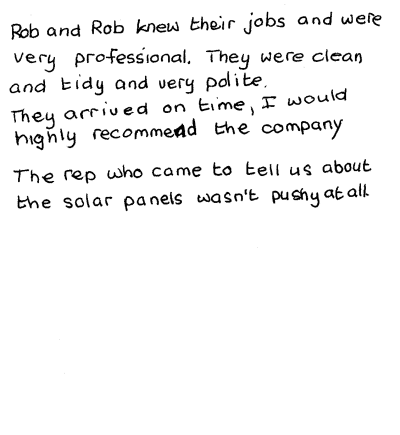 Rob and Rob knew their jobs and were
very professional. They were clean
and tidy and very polite.
They arrived on time, I would
highly recommend the company
The rep who came to tell us about
the solar panels wasn't pushy at all